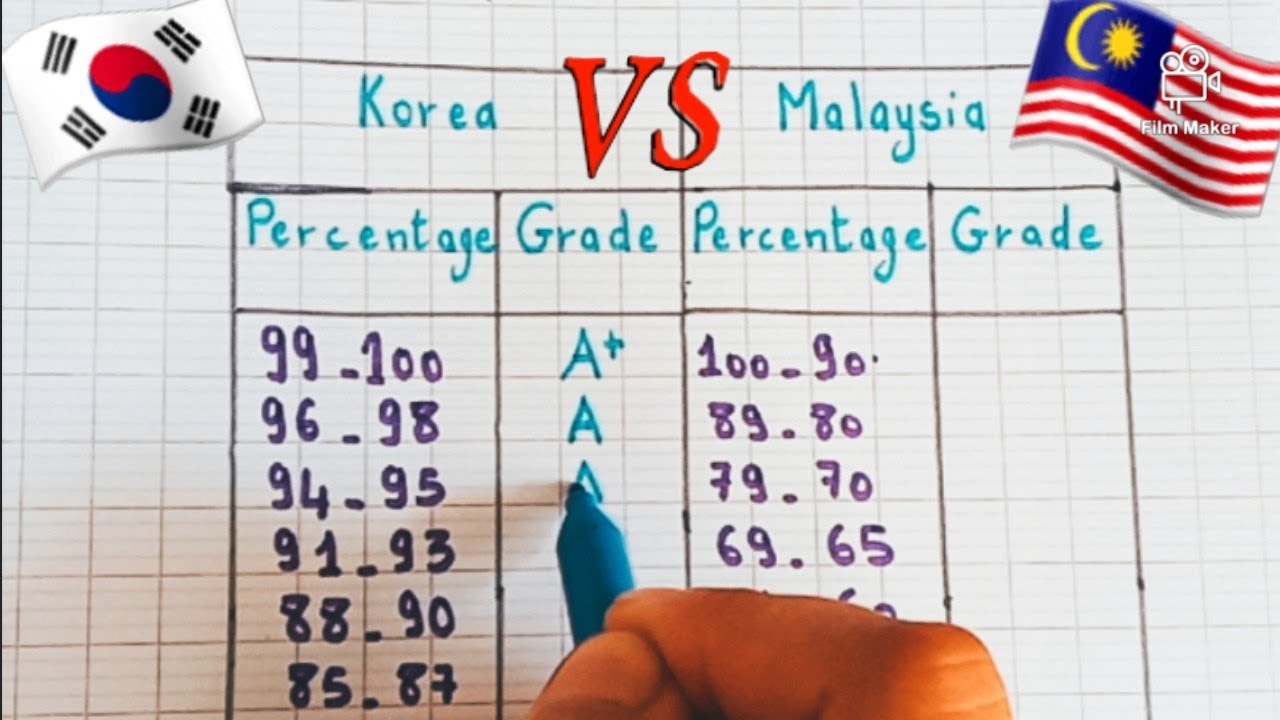 Korea VS Malaysia
Film Maker
Percentage Grade Percentage Grade
99-100 A+ 100-90
96-98 A 89-80
94-95 A 79-70
91-93 69-65
88-90 60
85-87